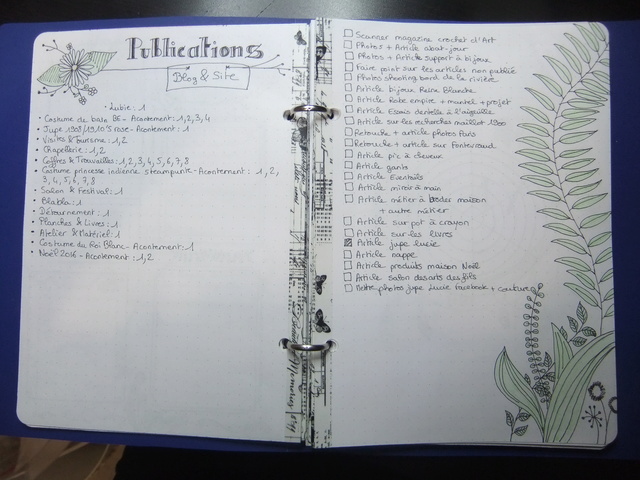 Publications
Blog & Site
• Lubie : 1
• Costume de bain BE - Acontement : 1,2,3,4
• Jupe 1908/1910's rose - Acontement : 1
• Visites & Tourisme : 1,2
• Chapellerie : 1,2
• Coffres & Trouvailles : 1,2,3,4,5,6,7,8
• Costume princesse indienne steampunk - Acontement : 1, 2,
3, 4, 5, 6, 7, 8
• Salon & Festival : 1
• Blabla : 1
• Détournement : 1
• Planches & Livres : 1
• Atelier & Matériel : 1
• Costume du Roi Blanc - Acontement : 1
• Noël 2016 - Acontement : 1,2
Scanner magazine crochet d'Art
Photos + Article abat-jour
Photos + Article support à bijoux
Faire point sur les articles non publié
Photos shooting bord de la rivière
Article bijoux Reine Blanche
Article Robe empire + mantel + projet
Article Essais dentelle à l'aiguille
Article sur les recherches maillot 1900
Retouche + article photos Paris
Retouche + article sur Fontevraud
Article pic à cheveux
Article gants
Article Eventails
Article miroir à main
Article métier à broder maison
+ autre métier
Article sur pot à crayon
Article sur les livres
Article jupe lucie
Article nappe
Article produits maison Noël
Article salon des arts des fils
Mettre photos jupe Lucie facebook + couture